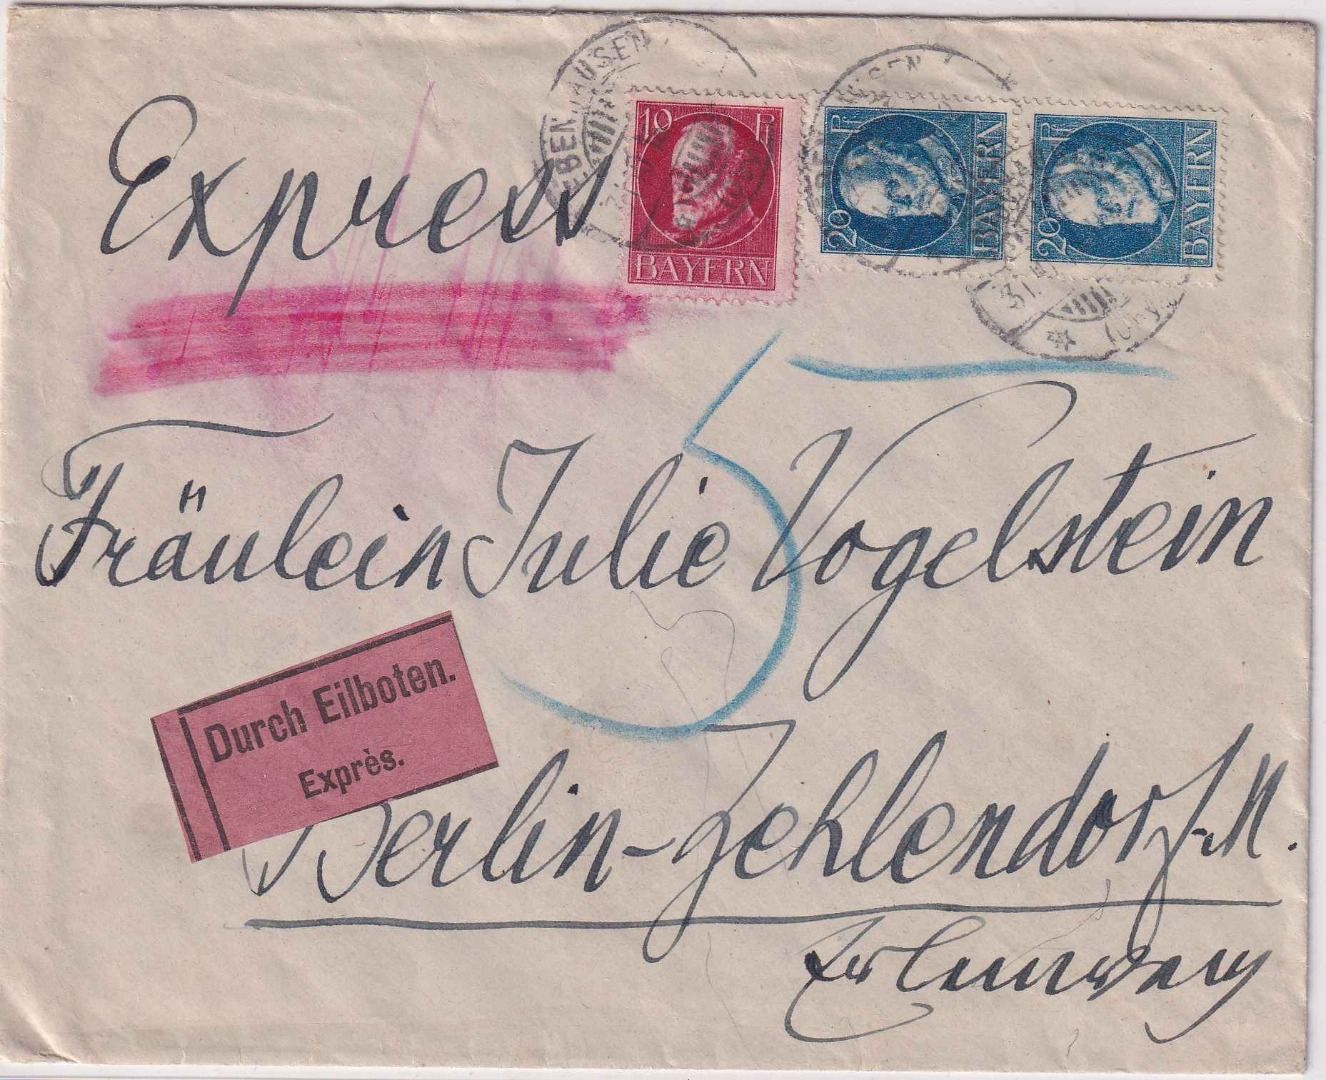 Express
10 Pf
BAYERN
20 Pf
BAYERN
20 Pf
BAYERN
31
(Oby.)
5
Fräulein Julie Vogelstein
Durch Eilboten.
Exprès.
Berlin-Zehlendorf-M.